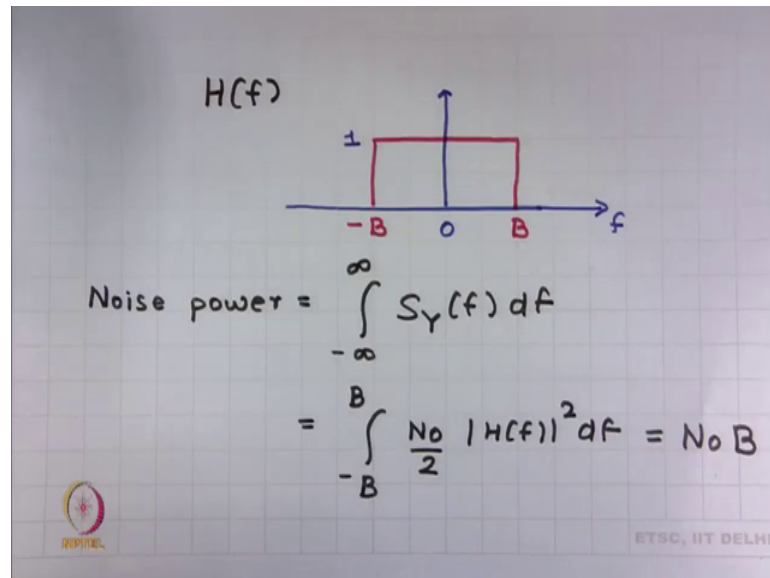 H(f)
1
-B 0 B f
Noise power = ∫_{-∞}^{∞} S_Y(f) df
= ∫_{-B}^{B} No/2 |H(f)|² df = No B
NPTEL
ETSC, IIT DELHI